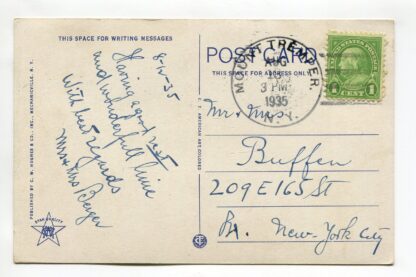 THIS SPACE FOR WRITING MESSAGES
8-12-35
Having a good rest
and wonderfull time
With best regards
Mr and Mrs Berger
PUBLISHED BY C. W. HUGHES & CO., INC., MECHANICVILLE, N. Y.
POST CARD
THIS SPACE FOR ADDRESS ONLY
MOUNT TREMPER
AUG
3 PM
1935
N.Y.
UNITED STATES POSTAGE
1 CENT 1
Mr. & Mrs.
Buffen
209 E 165 St
New-York City